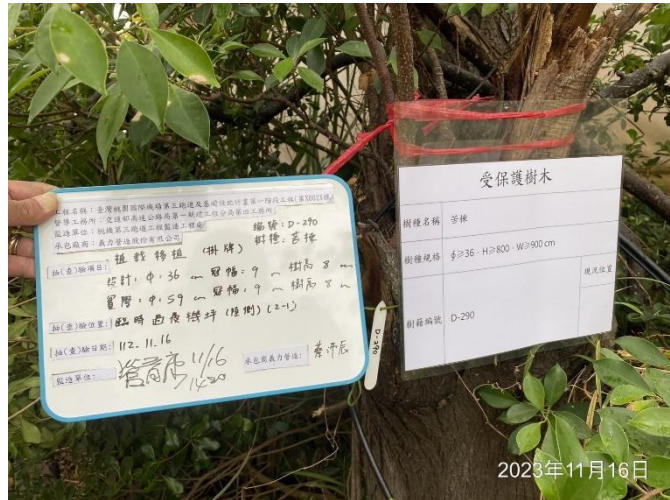 工程名稱：臺灣桃園國際機場第三跑道及基礎設施計畫第一階段工程
督導工務所：交通部高速公路局第一新建工程分局第四工務所
監造單位：桃機第三跑道工程監造工程處
承包廠商：義力營造股份有限公司
編號：D-290
樹種：苦楝
抽(查)驗項目：植栽移植 (掛牌)
設計：φ：36 cm 冠幅：9 m 樹高 8 m
實際：φ：59 cm 冠幅：9 m 樹高 8 m
抽(查)驗位置：臨時過夜機坪(陸側)(2-1)
抽(查)驗日期：112.11.16
監造單位：
11/16
1420
承包商義力營造：
D-290
受保護樹木
樹種名稱 苦楝
樹種規格 ∮≥36、H≥800、W≥900 cm
現況位置
樹籍編號 D-290
2023年11月16日